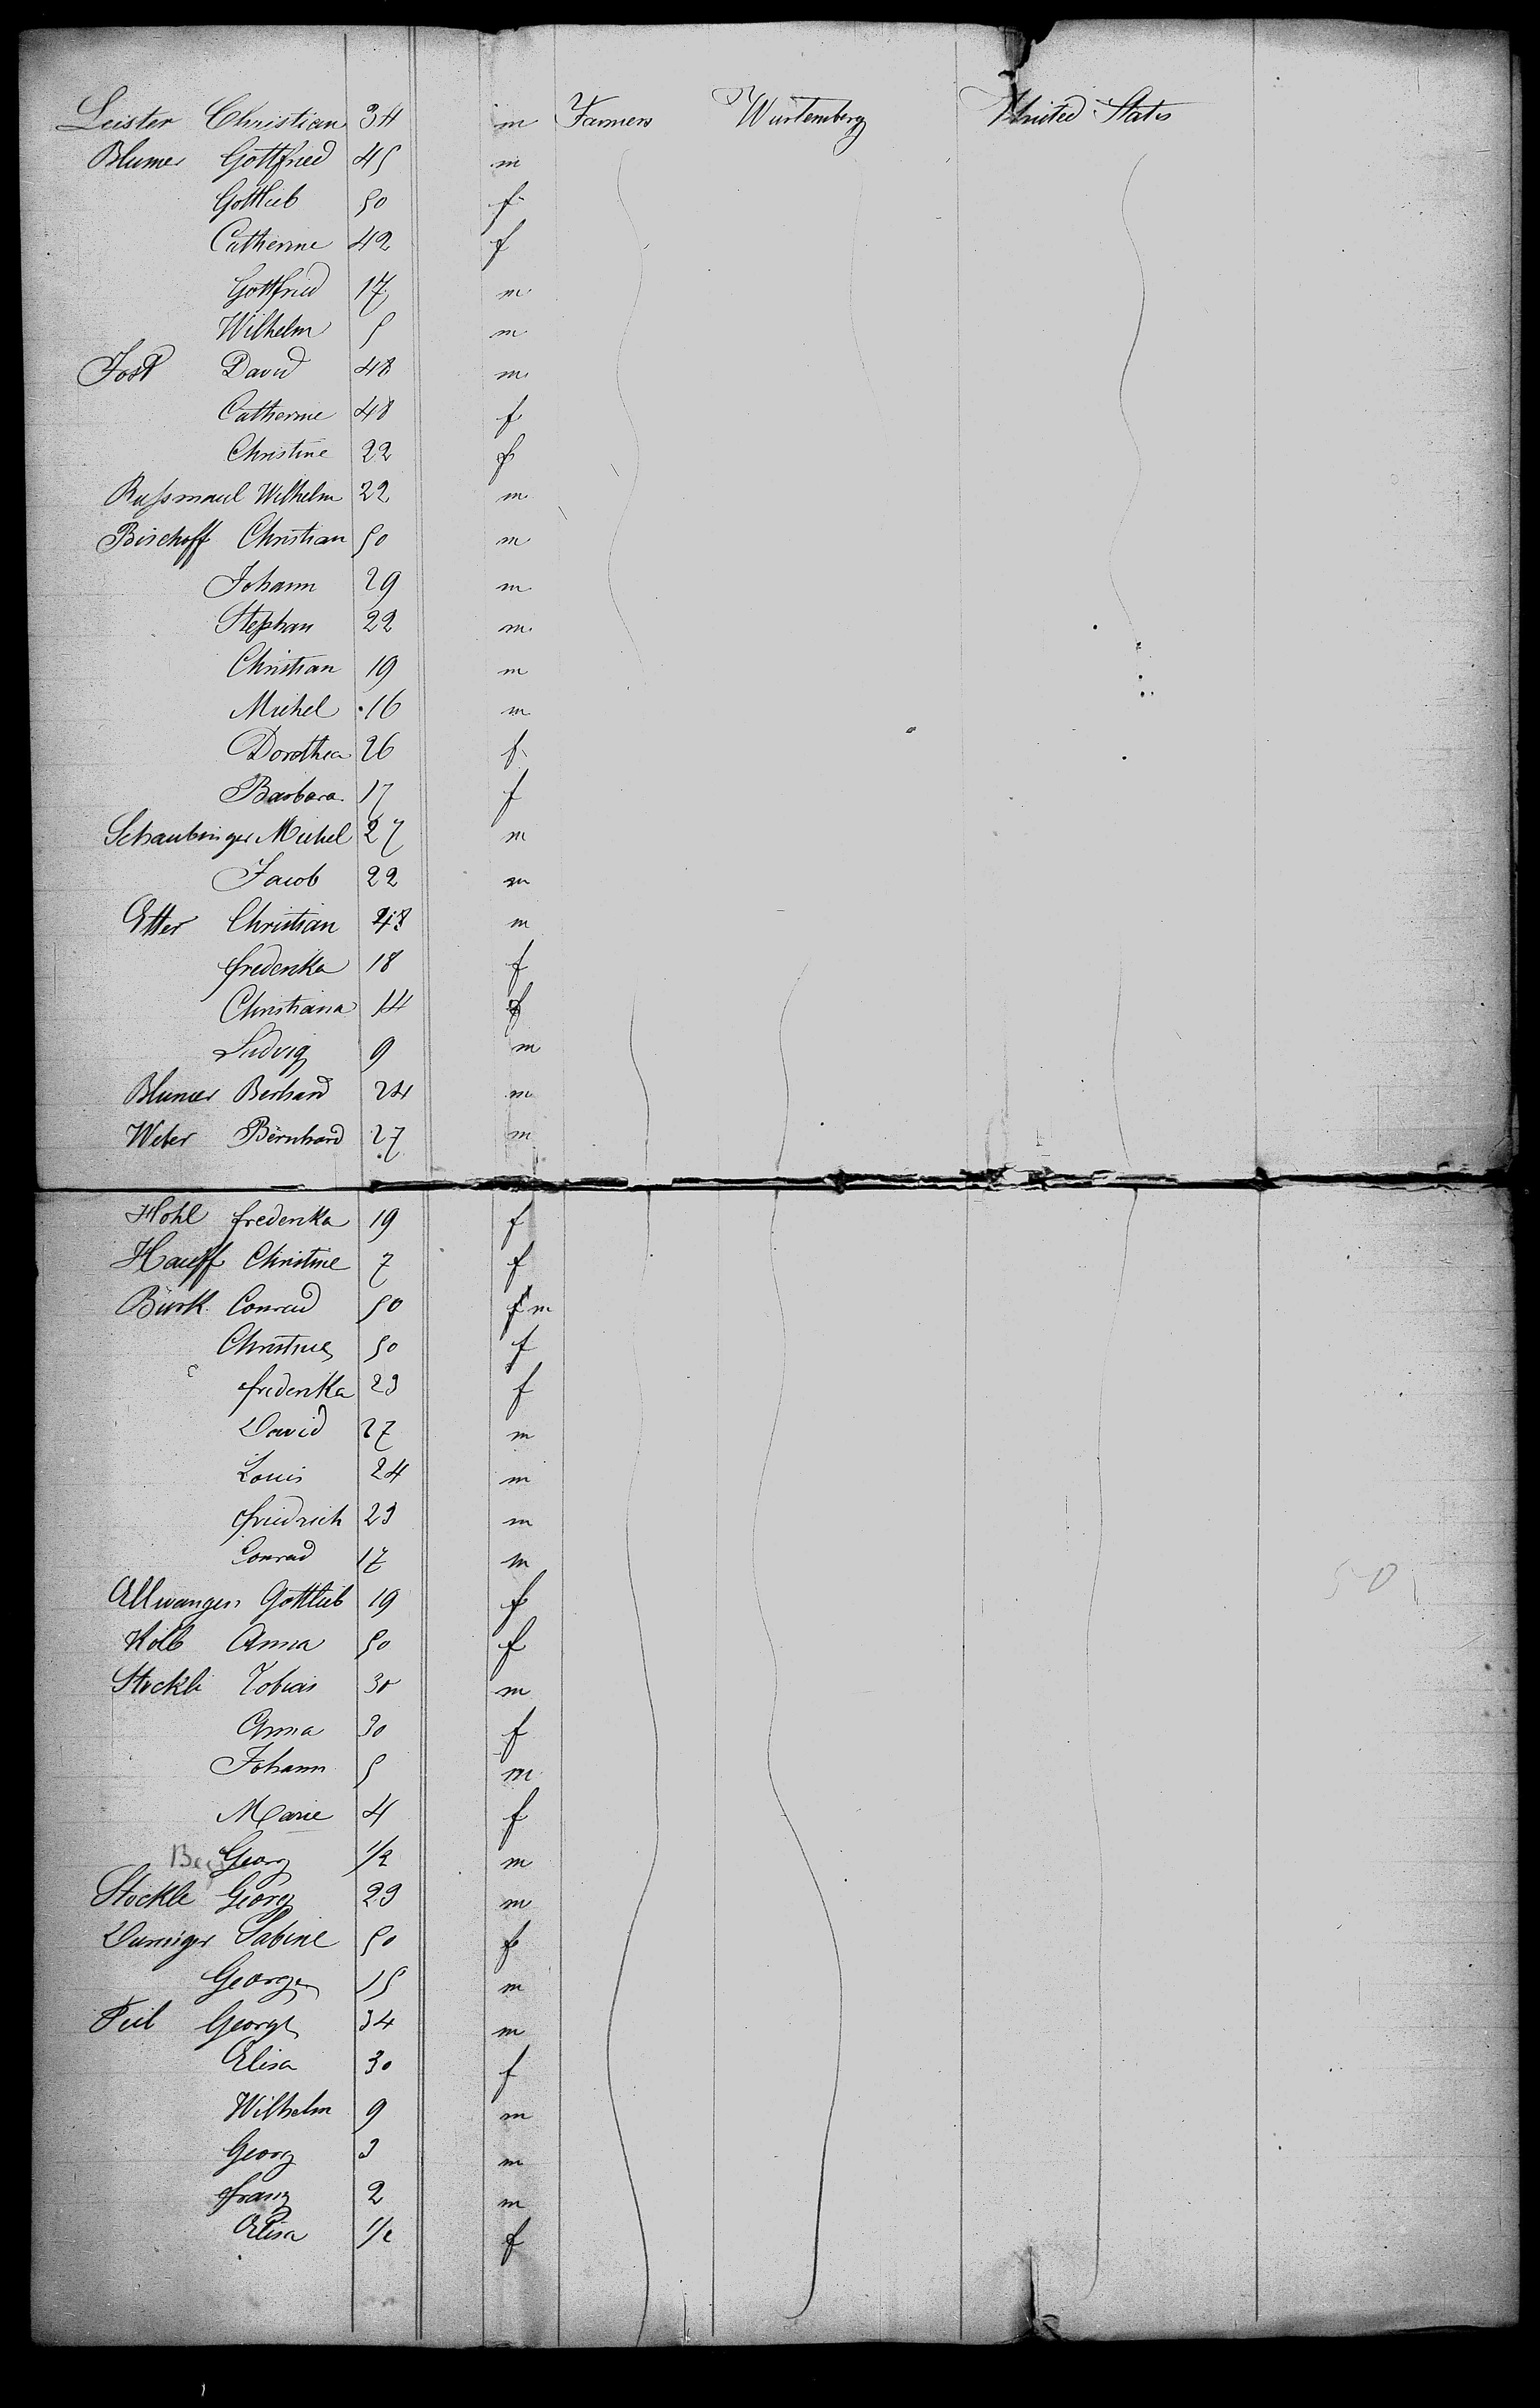 Leister Christian 34 m Farmers Wurtemberg United States
Blumer Gottfried 45 m
Gottlieb 50 f
Catherine 42 f
Gottfried 17 m
Wilhelm 5 m
Jost David 48 m
Catherine 48 f
Christine 22 f
Rußmaul Wilhelm 22 m
Bischoff Christian 50 m
Johann 29 m
Stephan 22 m
Christian 19 m
Michel 16 m
Dorothea 26 f
Barbara 17 f
Schaubinger Michel 27 m
Jacob 22 m
Etter Christian 48 m
frederika 18 f
Christiana 14 f
Ludvig 9 m
Blumer Berhard 24 m
Weber Bernhard 27 m
Hohl frederika 19 f
Hauff Christine 7 f
Bürk Conrad 50 f m
Christine 50 f
frederika 23 f
David 27 m
Louis 24 m
friedrich 23 m
Conrad 17 m
Allwanger Gottlieb 19 f
50
Kolb Anna 50 f
Stockli Tobias 30 m
Anna 30 f
Johann 5 m
Marie 4 f
Georg 1/2 m
Stockle Georg 23 m
Sabine 50 f
George 15 m
Feil George 34 m
Elisa 30 f
Wilhelm 9 m
Georg 3 m
franz 2 m
Elisa 1/2 f